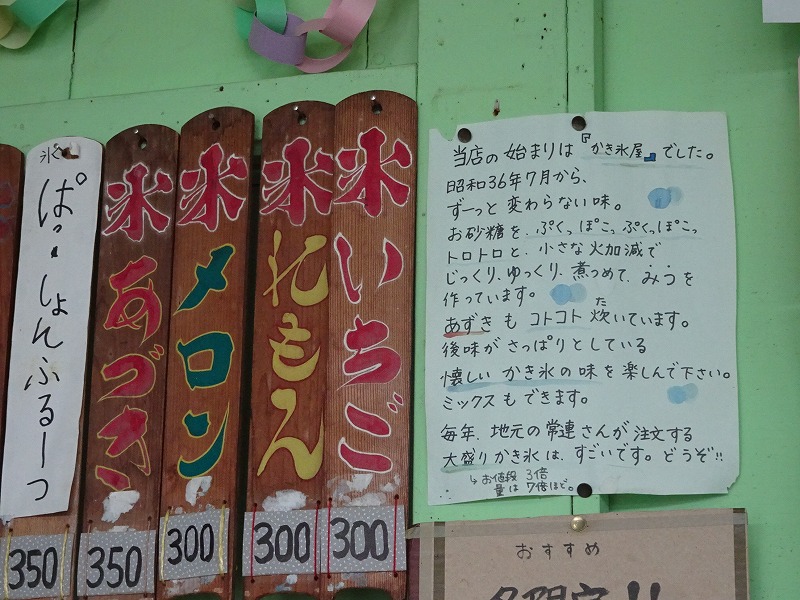 氷
ぱっしょんふるーつ
350
氷あづき
350
氷メロン
300
氷れもん
300
氷いちご
300
当店の始まりは『かき氷屋』でした。
昭和36年7月から、
ずーっと変わらない味。
お砂糖を、ぷくっぽこっぷくっぽこっ
トロトロと、小さな火加減で
じっくり、ゆっくり、煮つめて、みつを
作っています。
た
あずきもコトコト炊いています。
後味がさっぱりとしている
懐しいかき氷の味を楽しんで下さい。
ミックスもできます。
毎年、地元の常連さんが注文する
大盛りかき氷は、すごいです。どうぞ!!
↳お値段3倍
量は7倍ほど。
おすすめ